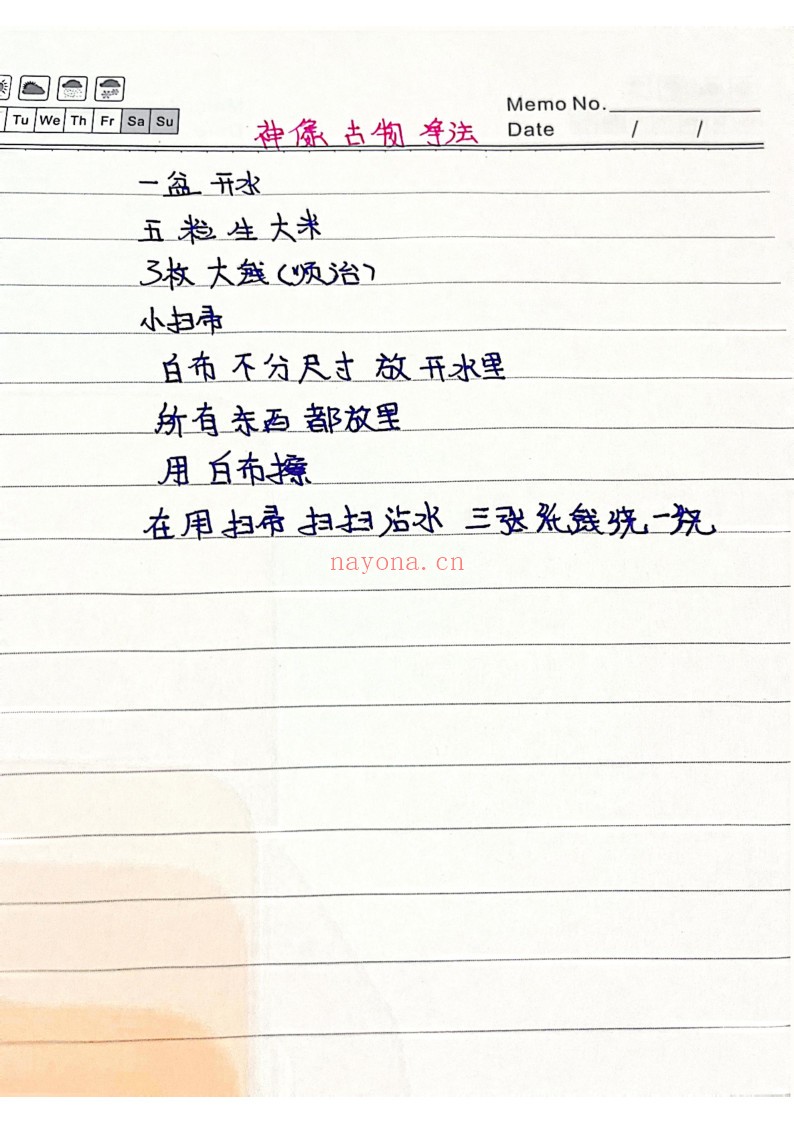 Memo No.
Tu We Th Fr Sa Su
神像 古物 净法
Date / /
一盆 开水
五粒生大米
3枚大钱(顺治)
小扫帚
白布 不分尺寸 放 开水里
所有东西都放里
用 白布擦
在用扫帚扫扫沾水 三张纸钱烧一烧
nayona.cn